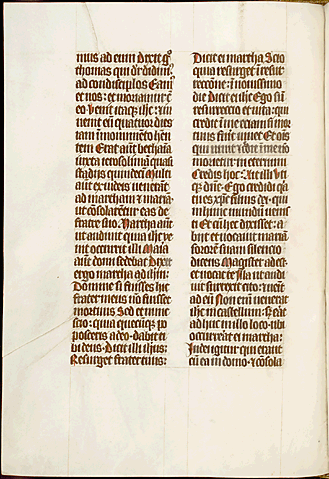 nius ad eum dixit g°
thomas qui dr didim⁹
ad condisciplos Eam⁹
et nos · et moriamur cū
eo Venit itaq̄ ihc · ⁊ in
venit eū quatuor dies
iam ī monumēto hñ
tem Erat autē bethaīa
iuxta ierosolimā quasi
stadiis quindecī Multi
autē ex iudeis venerāt
ad martham ⁊ mariā
ut cōsolarētur eas de
fratre suo Martha autē
ut audiuit quia ihc ve
nit occurrit illi Maria
autē domi sedebat Dixit
ergo martha ad ihm
Domine si fuisses hic
frater meus nō fuisset
mortuus Sed et nunc
scio · quia quecūq̄ po
posceris a deo · dabit ti
bi deus · Dicit illi ihus ·
Resurget frater tuus ·
Dicit ei martha Scio
quia resurget ī resur
rectōne · ī nouissimo
die Dixit ei ihc Ego sū
resurrectio et vita · qui
credit ī me etiam si mor
tuus fuit viuet Et oīs
qui viuit ⁊ credit ī me nō
morietur in eternum
Credis hoc · Ait illi Vti
q̄ dñe · Ego credidi q̄a
tu es xp̄c filius dei · qui
in hunc mundū venisti
Et cū hec dixisset · a
biit et vocauit mariā
sororē suam silencio
dicens Magister adest
et vocat te Illa ut audi
uit surrexit cito · ⁊ venit
ad eū Non enī venerat
ihc in castellum · S; erat
adhuc in illo loco · ubi
occurrerat ei martha ·
Iudei igitur qui erant
cū ea in domo · ⁊ cōsola